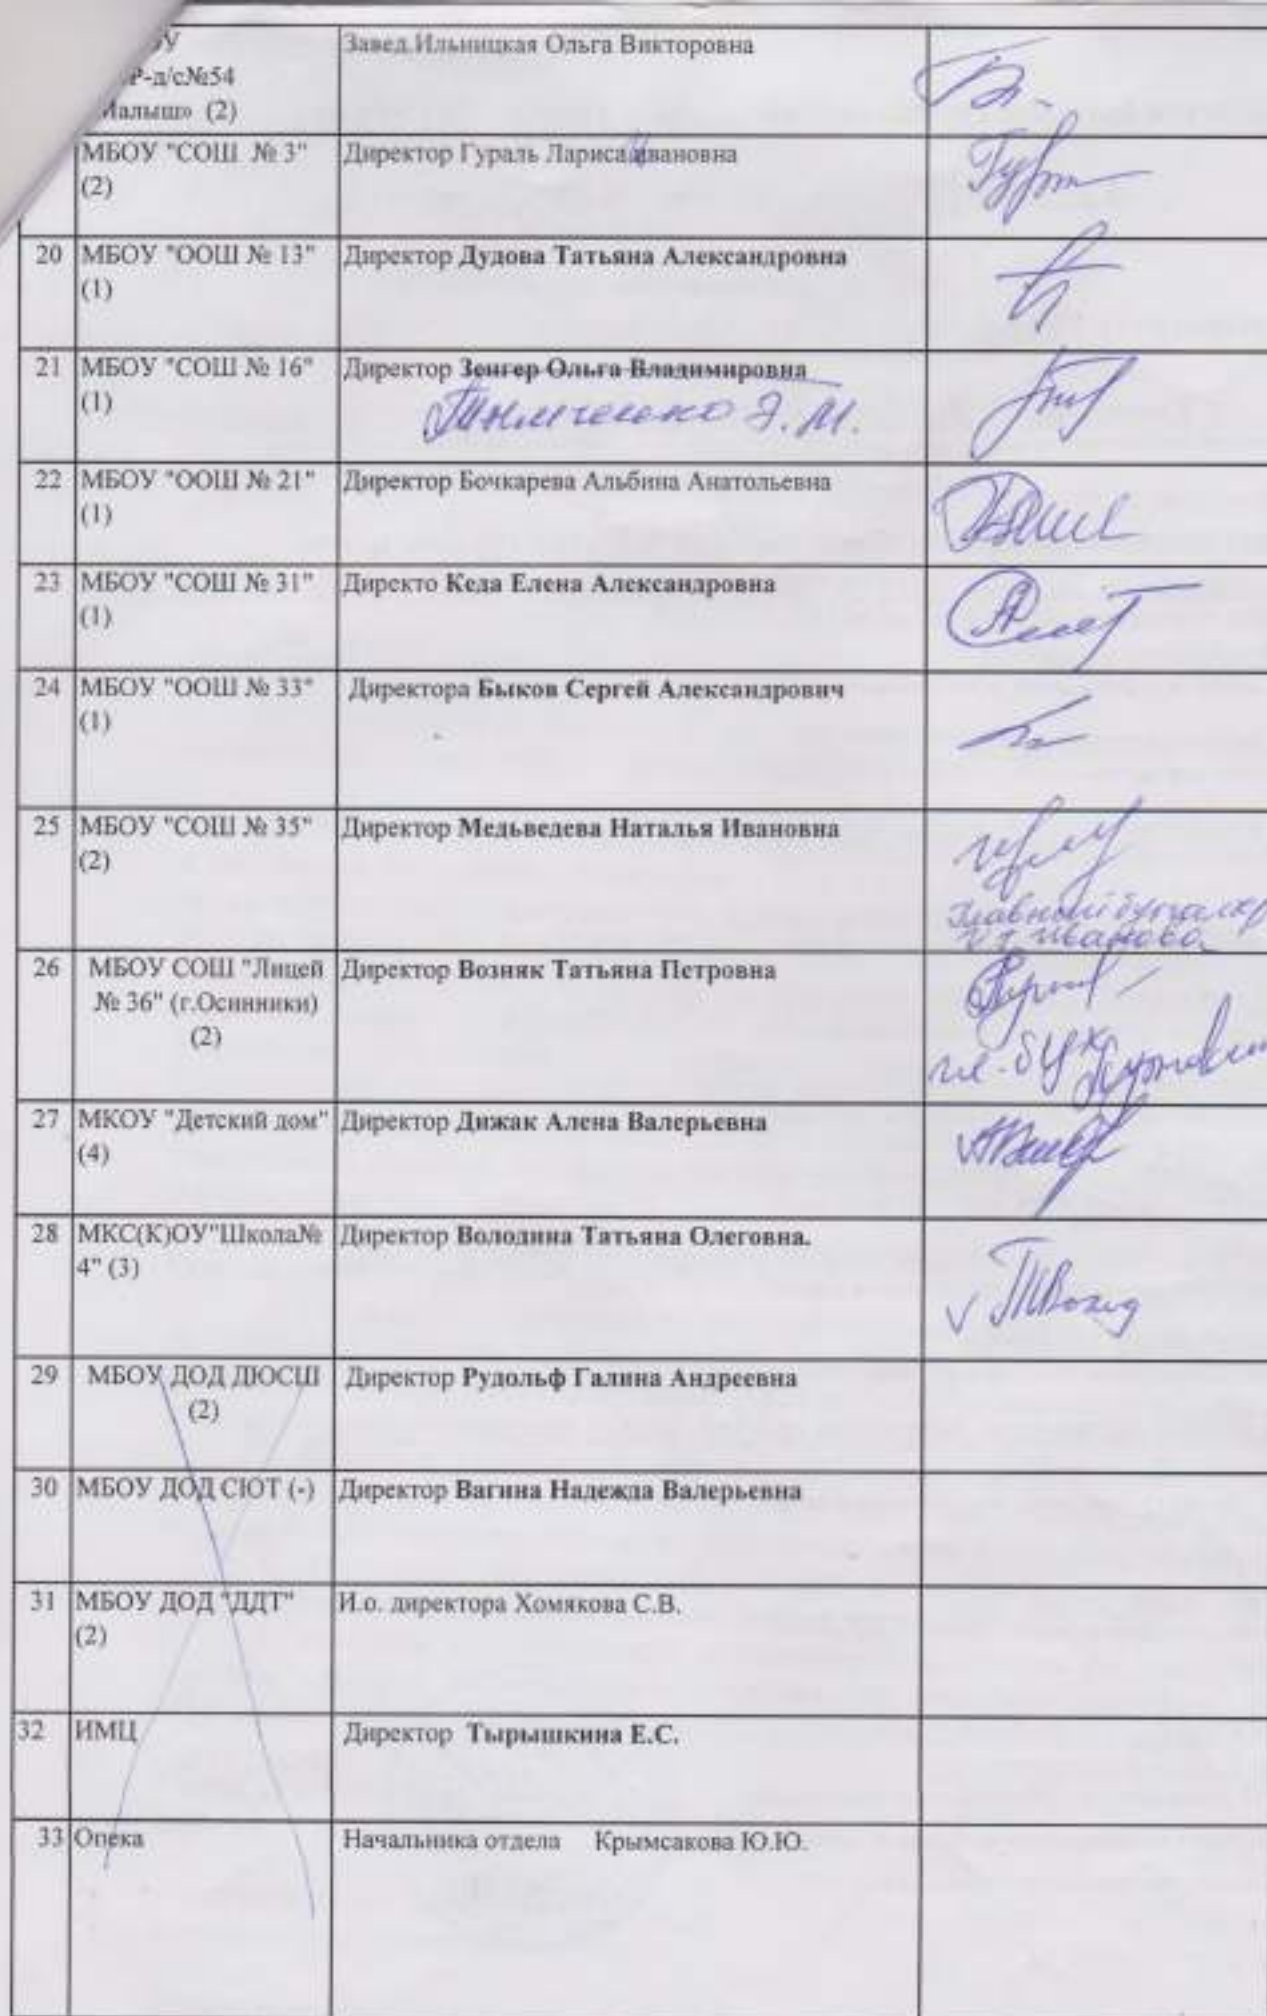 Завед.Ильницкая Ольга Викторовна
Р-д/с№54
Малыш» (2)
МБОУ "СОШ № 3" Директор Гураль Лариса Ивановна
(2)
20 МБОУ "ООШ № 13" Директор Дудова Татьяна Александровна
(1)
21 МБОУ "СОШ № 16" Директор Зенгер Ольга Владимировна
(1) Тимченко Э.М.
22 МБОУ "ООШ № 21" Директор Бочкарева Альбина Анатольевна
(1)
23 МБОУ "СОШ № 31" Директо Кеда Елена Александровна
(1)
24 МБОУ "ООШ № 33" Директора Быков Сергей Александрович
(1)
25 МБОУ "СОШ № 35" Директор Медьведева Наталья Ивановна
(2)
Главный бухгалтер
Иванова
26 МБОУ СОШ "Лицей Директор Возняк Татьяна Петровна
№ 36" (г.Осинники)
(2)
гл. бух
27 МКОУ "Детский дом" Директор Дижак Алена Валерьевна
(4)
28 МКС(К)ОУ"Школа№ Директор Володина Татьяна Олеговна.
4" (3)
29 МБОУ ДОД ДЮСШ Директор Рудольф Галина Андреевна
(2)
30 МБОУ ДОД СЮТ (-) Директор Вагина Надежда Валерьевна
31 МБОУ ДОД "ДДТ" И.о. директора Хомякова С.В.
(2)
32 ИМЦ Директор Тырышкина Е.С.
33 Опека Начальника отдела Крымсакова Ю.Ю.